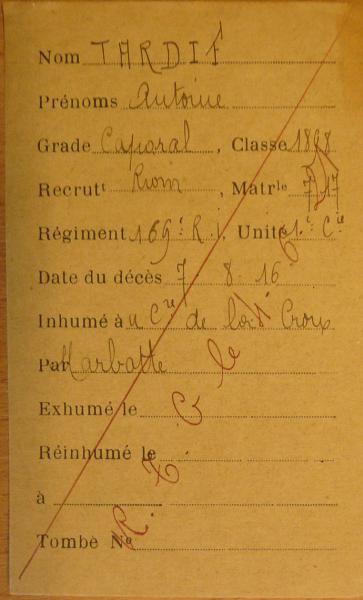 Nom TARDIF
Prénoms Antoine
Grade Caporal, Classe 1898
Recrut^t Riom, Matr^le 717
Régiment 169^e R.I, Unité 1^e C^ie
Date du décès 7 8 16
Inhumé à u C^re de Croix
Par Marbotte
Exhumé le
Réinhumé le
à
Tombe N°